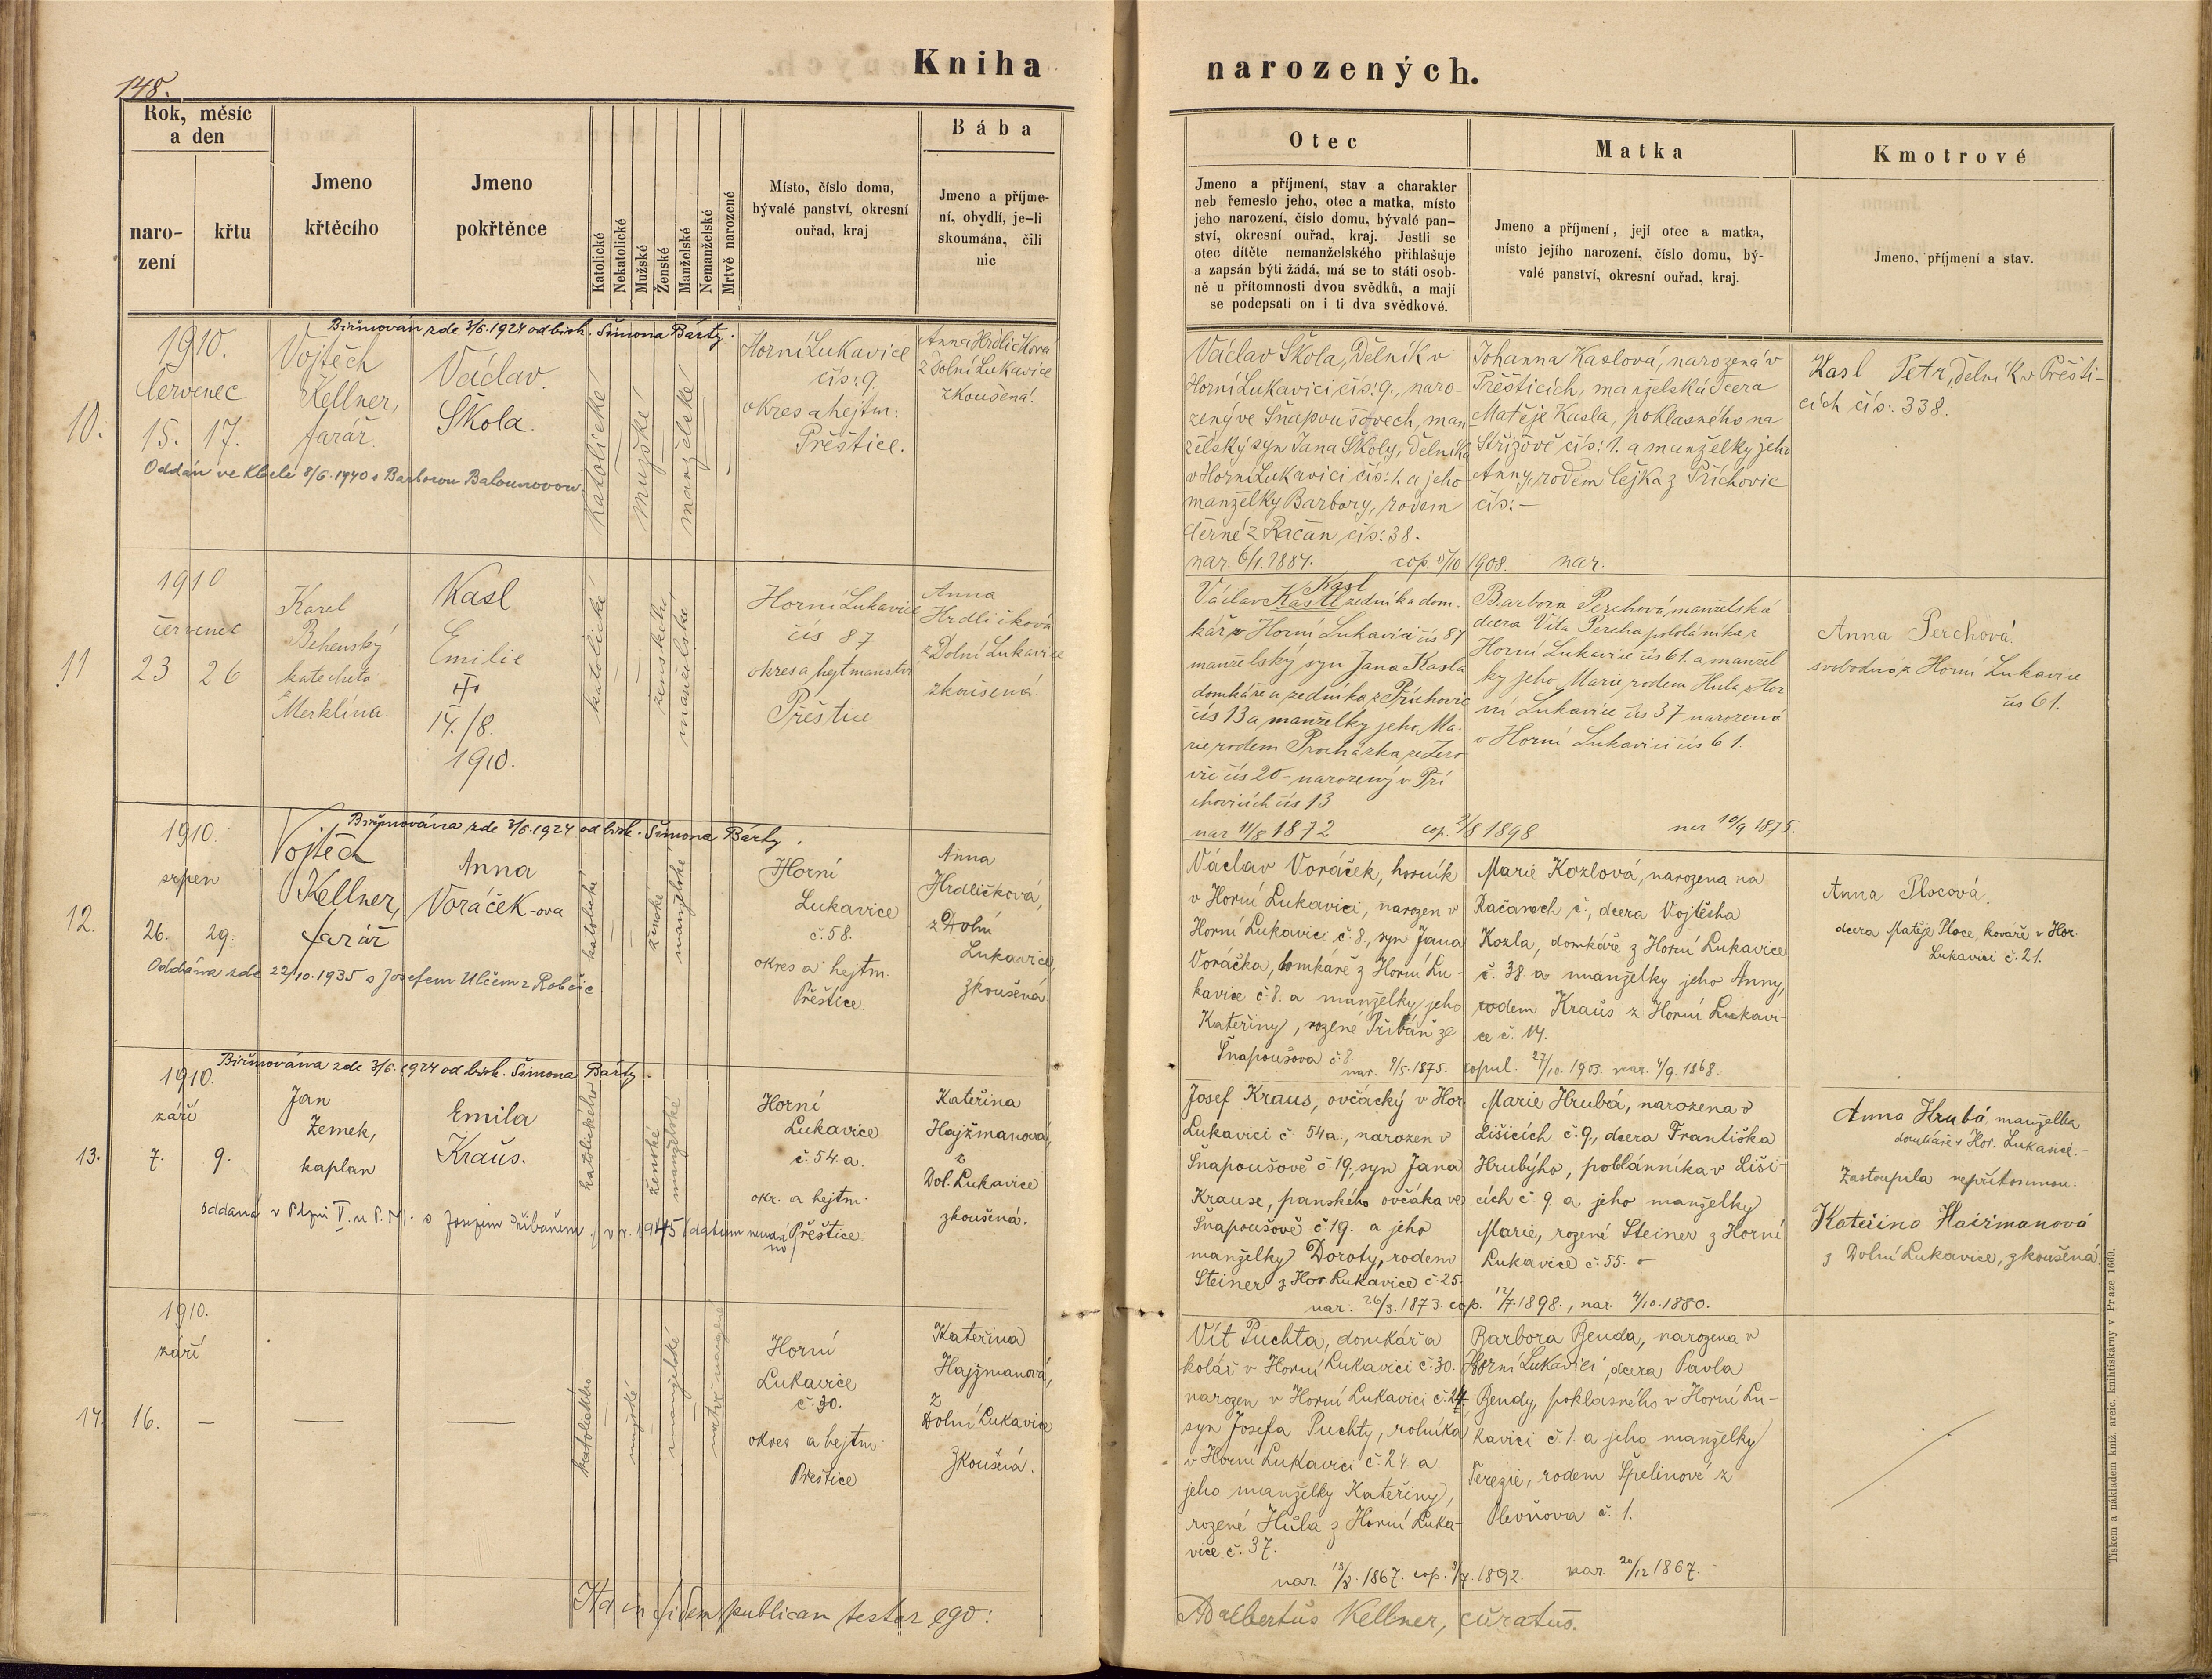 148.
Kniha
narozených.
Rok, měsíc
a den
naro-
zení
křtu
Jmeno
křtěcího
Jmeno
pokřtěnce
Katolické
Nekatolické
Mužské
Ženské
Manželské
Nemanželské
Mrtvě narozené
Místo, číslo domu,
bývalé panství, okresní
ouřad, kraj
Bába
Jmeno a příjme-
ní, obydlí, je-li
skoumána, čili
nic
Otec
Jmeno a příjmení, stav a charakter
neb řemeslo jeho, otec a matka, místo
jeho narození, číslo domu, bývalé pan-
ství, okresní ouřad, kraj. Jestli se
otec dítěte nemanželského přihlašuje
a zapsán býti žádá, má se to státi osob-
ně u přítomnosti dvou svědků, a mají
se podepsati on i ti dva svědkové.
Matka
Jmeno a příjmení, její otec a matka,
místo jejího narození, číslo domu, bý-
valé panství, okresní ouřad, kraj.
Kmotrové
Jmeno, příjmení a stav.
Biřmován zde 3/6.1924 od bisk. Šimona Bárty.
10.
1910.
červenec
15. 17.
Vojtěch
Kellner,
farář.
Václav.
Škola.
katolické
mužské
manželské
Horní Lukavice
čís: 9.
okres a hejtm:
Přěštice.
Anna Hrdličková
z Dolní Lukavice
zkoušená.
Oddán ve Kbeli 8/6.1940 s Barborou Balounovou.
Václav Škola, dělník v
Horní Lukavici čís: 9., naro-
zený ve Šnapoušovech, man
želský syn Jana Školy, dělníka
v Horní Lukavici čís: 1. a jeho
manželky Barbory, rodem
Černé z Račan čís: 38.
nar. 6/1. 1884. cop. 5/10 1908. nar.
Johanna Kaslová, narozená v
Přěšticích, manželská dcera
Matěje Kasla, poklasného na
Střížově čís: 1. a manželky jeho
Anny, rodem Čejka z Příchovic
čís: –
Kasl Petr, dělník v Přěšti-
cích čís: 338.
11
1910
červenec
23 26
Karel
Behenský
katecheta
z Merklína
Kasl
Emilie
14./8.
1910.
katolické
ženského
manželské
Horní Lukavice
čís 87
okres a hejtmanství
Přěštice
Anna
Hrdličková
z Dolní Lukavice
zkoušená
Kasl
Václav Kastl zedník a dom.
kář v Horní Lukavici čís 87
manželský syn Jana Kasla
domkáře a zedníka z Příchovic
čís 13 a manželky jeho Ma-
rie rodem Procházka ze Žero
vic čís 20 – narozený v Pří
chovicích čís 13
nar 11/8 1872 cop. 2/8 1898 nar 10/9 1875.
Barbora Perchová, manželská
dcera Víta Percha pololáníka z
Horní Lukavice čís 61. a manžel
ky jeho Marie rodem Hula z Hor
ní Lukavice čís 37 narozená
v Horní Lukavici čís 61.
Anna Perchová.
svobodná z Horní Lukavice
čís 61.
Biřmována zde 3/6.1924 od bisk. Šimona Bárty.
12.
1910.
srpen
26. 29.
Vojtěch
Kellner,
farář
Anna
Voráček-ova
katolické
ženské
manželské
Horní
Lukavice
č. 58.
okres a hejtm.
Přěštice.
Anna
Hrdličková,
z Dolní
Lukavice,
zkoušená
Oddána zde 22/10.1935 s Josefem Ulčem z Robčic.
Václav Voráček, horník
v Horní Lukavici, narozen v
Horní Lukavici č. 8., syn Jana
Voráčka, domkáře z Horní Lu-
kavice č. 8. a manželky jeho
Kateřiny, rozené Přibáň ze
Šnapoušova č. 8.
nar. 9/5. 1875. copul. 27/10. 1903. nar. 4/9. 1868.
Marie Kozlová, narozena na
Račanech č., dcera Vojtěcha
Kozla, domkáře z Horní Lukavice
č. 38 a manželky jeho Anny,
rodem Krauš z Horní Lukavi-
ce č. 14.
Anna Plocová.
dcera Matěje Ploce, kováře v Hor.
Lukavici č. 21.
Biřmována zde 3/6. 1924 od bisk. Šimona Bárty.
13.
1910.
září
7. 9.
Jan
Zemek,
kaplan
Emila
Kraus.
katolického
ženské
manželské
Horní
Lukavice
č. 54. a.
okr. a hejtm.
Přěštice.
Kateřina
Hajžmanová,
z
Dol. Lukavice
zkoušená.
oddaná v Plzni V. u P. M. s Josefem Přibáněm v r. 1945 (datum neudá
no)
Josef Kraus, ovčácký v Hor.
Lukavici č 54a., narozen v
Šnapoušově č 19, syn Jana
Krause, panského ovčáka ve
Šnapoušově č 19. a jeho
manželky Doroty, rodem
Steiner z Hor. Lukavice č 25.
nar. 26/3. 1873. cop. 12/7. 1898., nar. 4/10. 1880.
Marie Hrubá, narozena v
Lišicích č. 9., dcera Františka
Hrubýho, poblánníka v Liši-
cích č. 9. a jeho manželky
Marie, rozené Steiner z Horní
Lukavice č. 55.
Anna Hrubá, manželka
domkáře v Hor. Lukavici. –
Zastoupila nepřítomnou:
Kateřina Hajžmanová
z Dolní Lukavice, zkoušená
14.
1910.
září
16. —
katolického
mužské
manželské
Horní
Lukavice
č. 30.
okres a hejtm.
Přěštice
Kateřina
Hajžmanová,
z
Dolní Lukavice
zkoušená.
Vít Puchta, domkář a
kolář v Horní Lukavici č. 30.
narozen v Horní Lukavici č. 24
syn Josefa Puchty, rolníka
v Horní Lukavici č. 24 a
jeho manželky Kateřiny,
rozené Hůla z Horní Luka-
vice č. 37.
nar. 13/8. 1867. cop. 3/7. 1892. nar. 20/12 1867. –
Barbora Benda, narozena v
Horní Lukavici, dcera Pavla
Bendy, poklasného v Horní Lu-
kavici č. 1. a jeho manželky
Terezie, rodem Špelinové z
Plevňova č. 1.
Ita in fidem publicam testor ego:
Adalbertus Kellner, curatus.
Tiskem a nákladem kníž. arcib. knihtiskárny v Praze 1669.